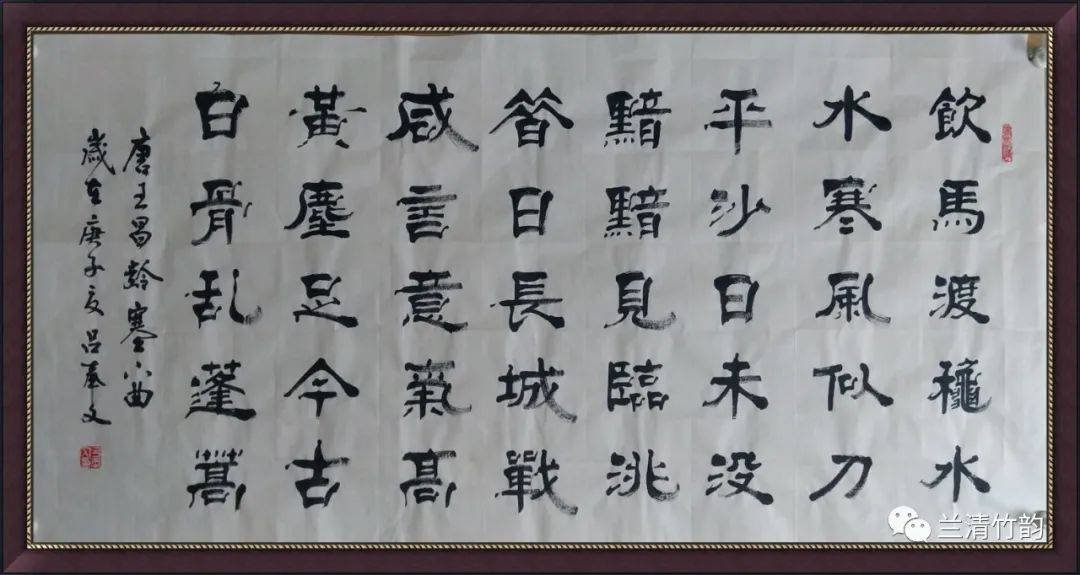 飲馬渡穐水
水寒風似刀
平沙日未没
黯黯見臨洮
昔日長城戰
咸言意氣高
黃塵足今古
白骨乱蓬蒿
唐王昌齡塞下曲
歲在庚子夏吕奉文
兰清竹韵